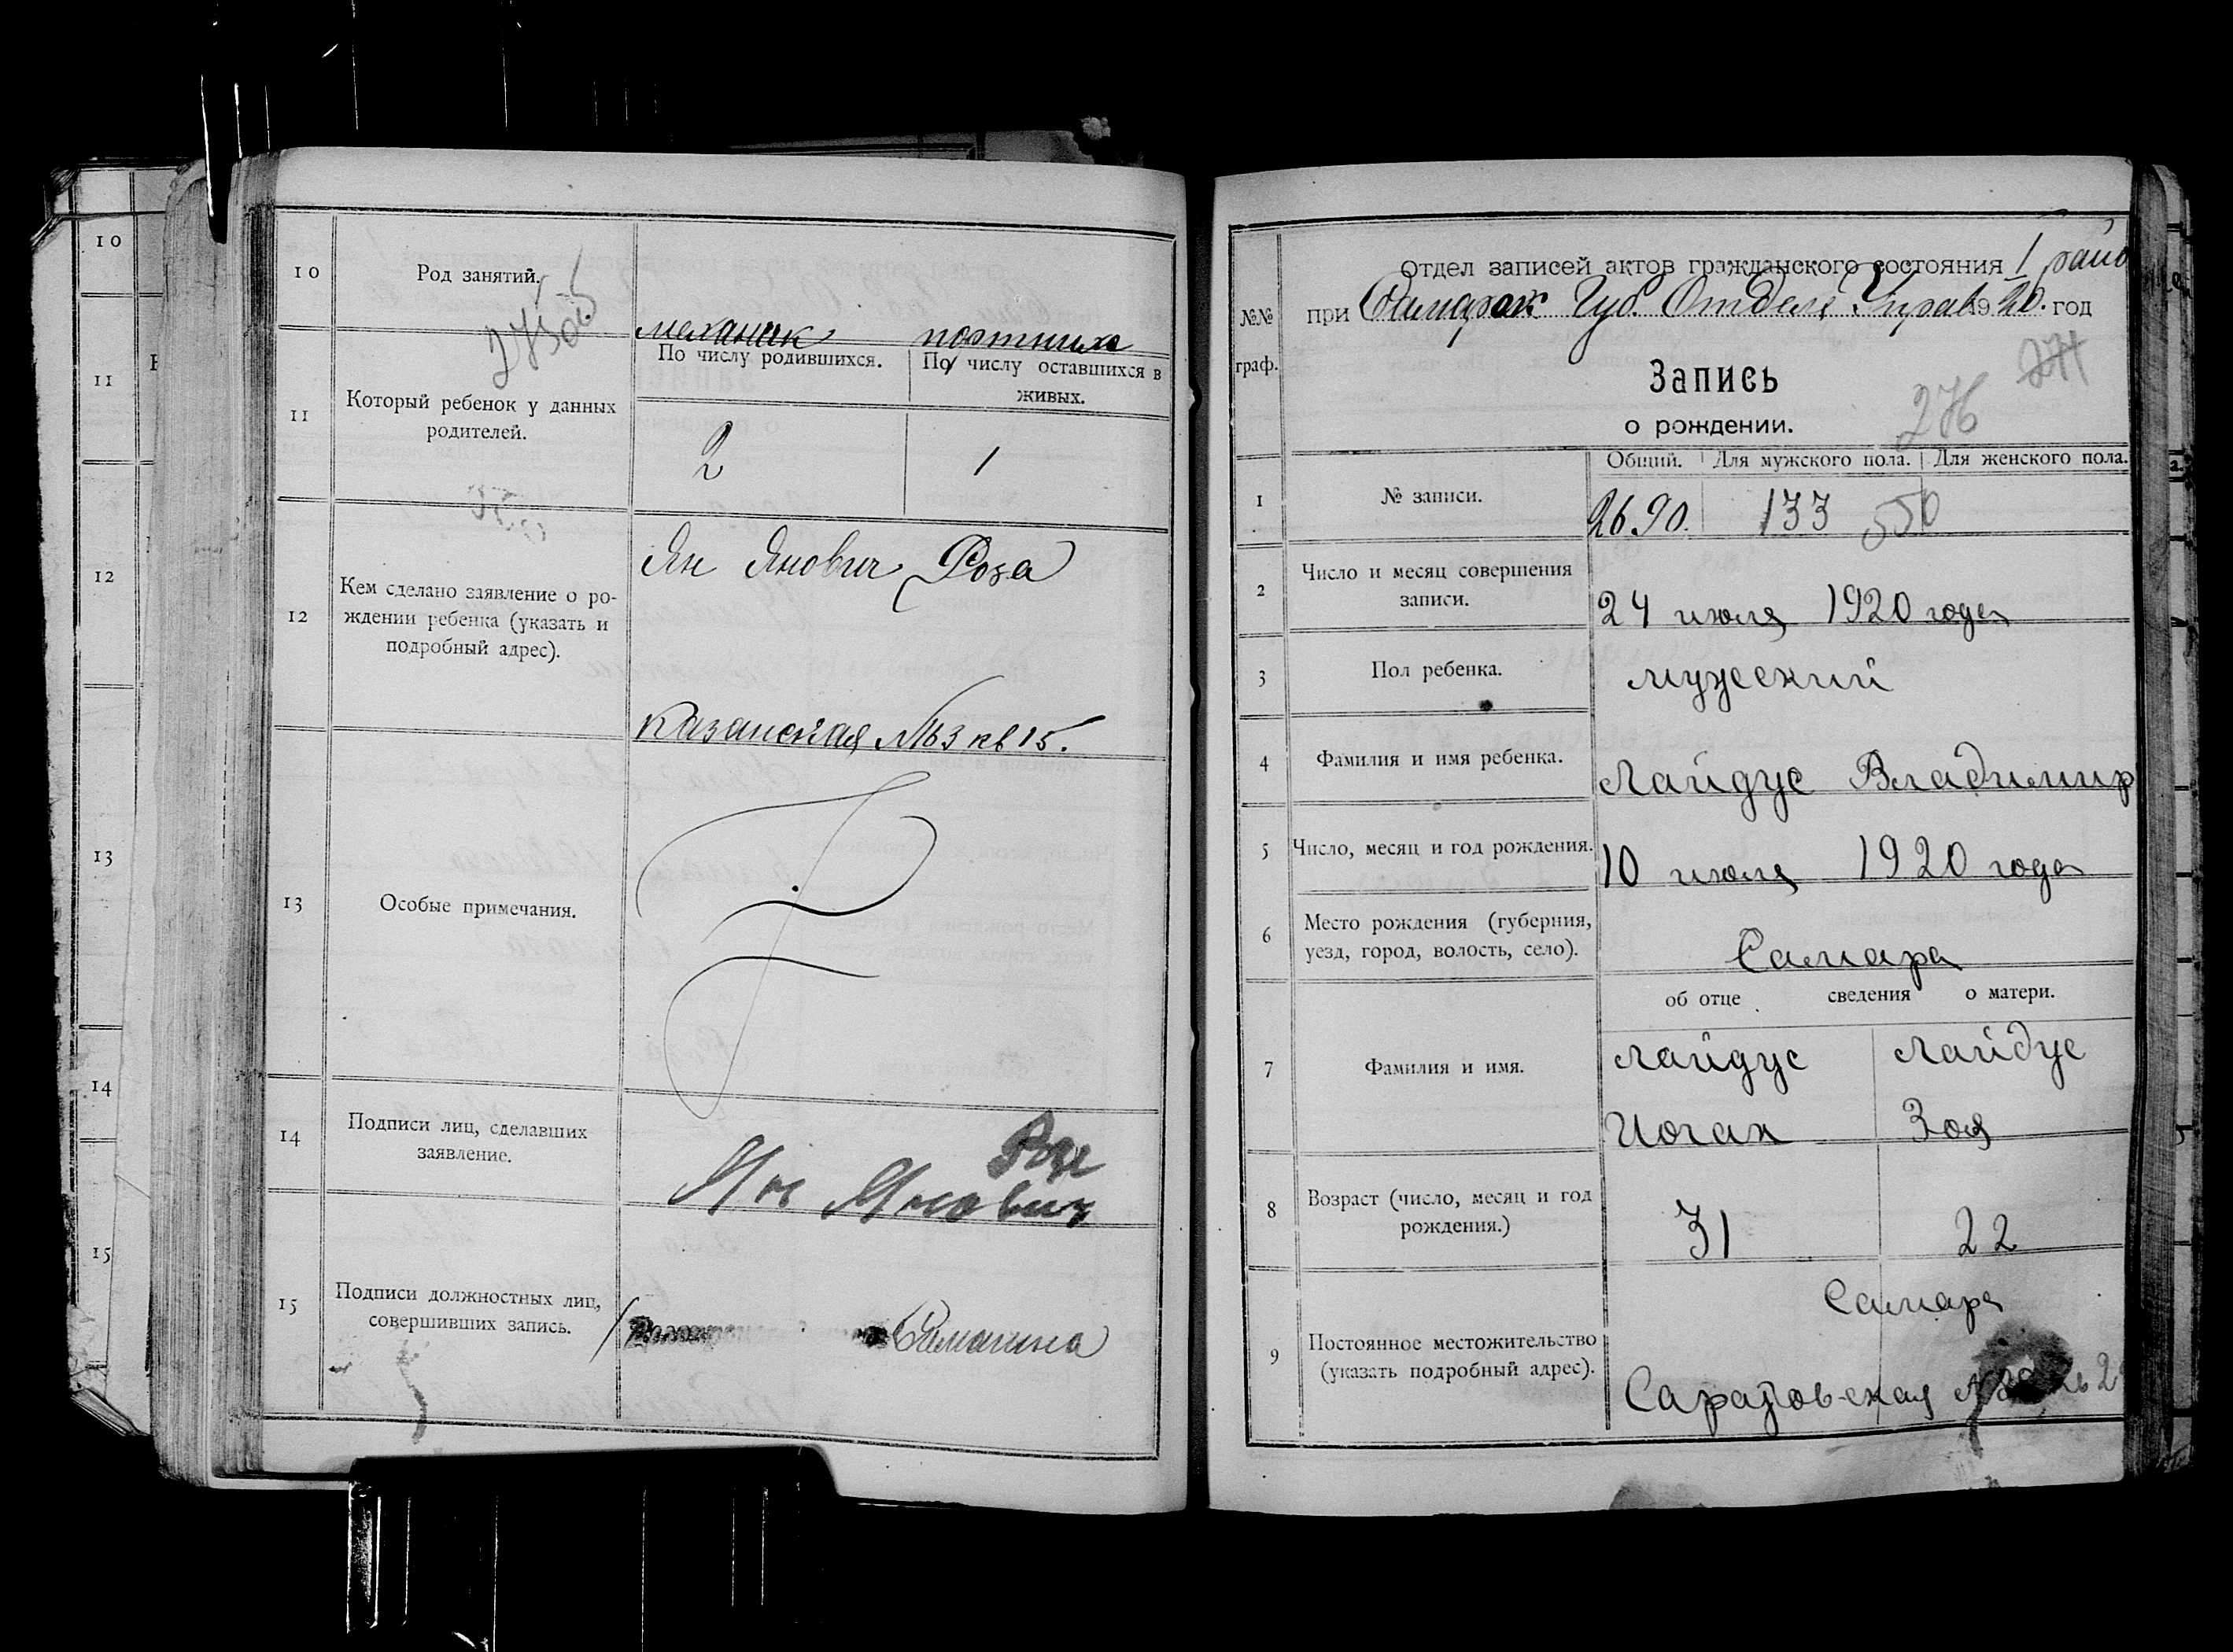 10
11
12
13
14
15
10
Род занятий.
275об
механик портниха
11
Который ребенок у данных
родителей.
По числу родившихся.
По числу оставшихся в
живых.
2
1
12
Кем сделано заявление о ро-
ждении ребенка (указать и
подробный адрес).
Ян Янович Роза
Казанская № 63 кв 15.
13
Особые примечания.
14
Подписи лиц, сделавших
заявление.
Ян Янович
15
Подписи должностных лиц,
совершивших запись.
№№
граф.
Отдел записей актов гражданского состояния 1 райо
при Самарск Губ. Отделе Управ 1920. год
Запись
о рождении.
276
271
Общий. Для мужского пола. Для женского пола.
1
№ записи.
2690. 133 550
2
Число и месяц совершения
записи.
24 июля 1920 года
3
Пол ребенка.
мужский
4
Фамилия и имя ребенка.
Лайдус Владимир
5
Число, месяц и год рождения.
10 июля 1920 года
6
Место рождения (губерния,
уезд, город, волость, село).
Самара
об отце сведения о матери.
7
Фамилия и имя.
Лайдус Лайдус
Иоган Зоя
8
Возраст (число, месяц и год
рождения.)
31 22
9
Постоянное местожительство
(указать подробный адрес).
Самара
Саратовская